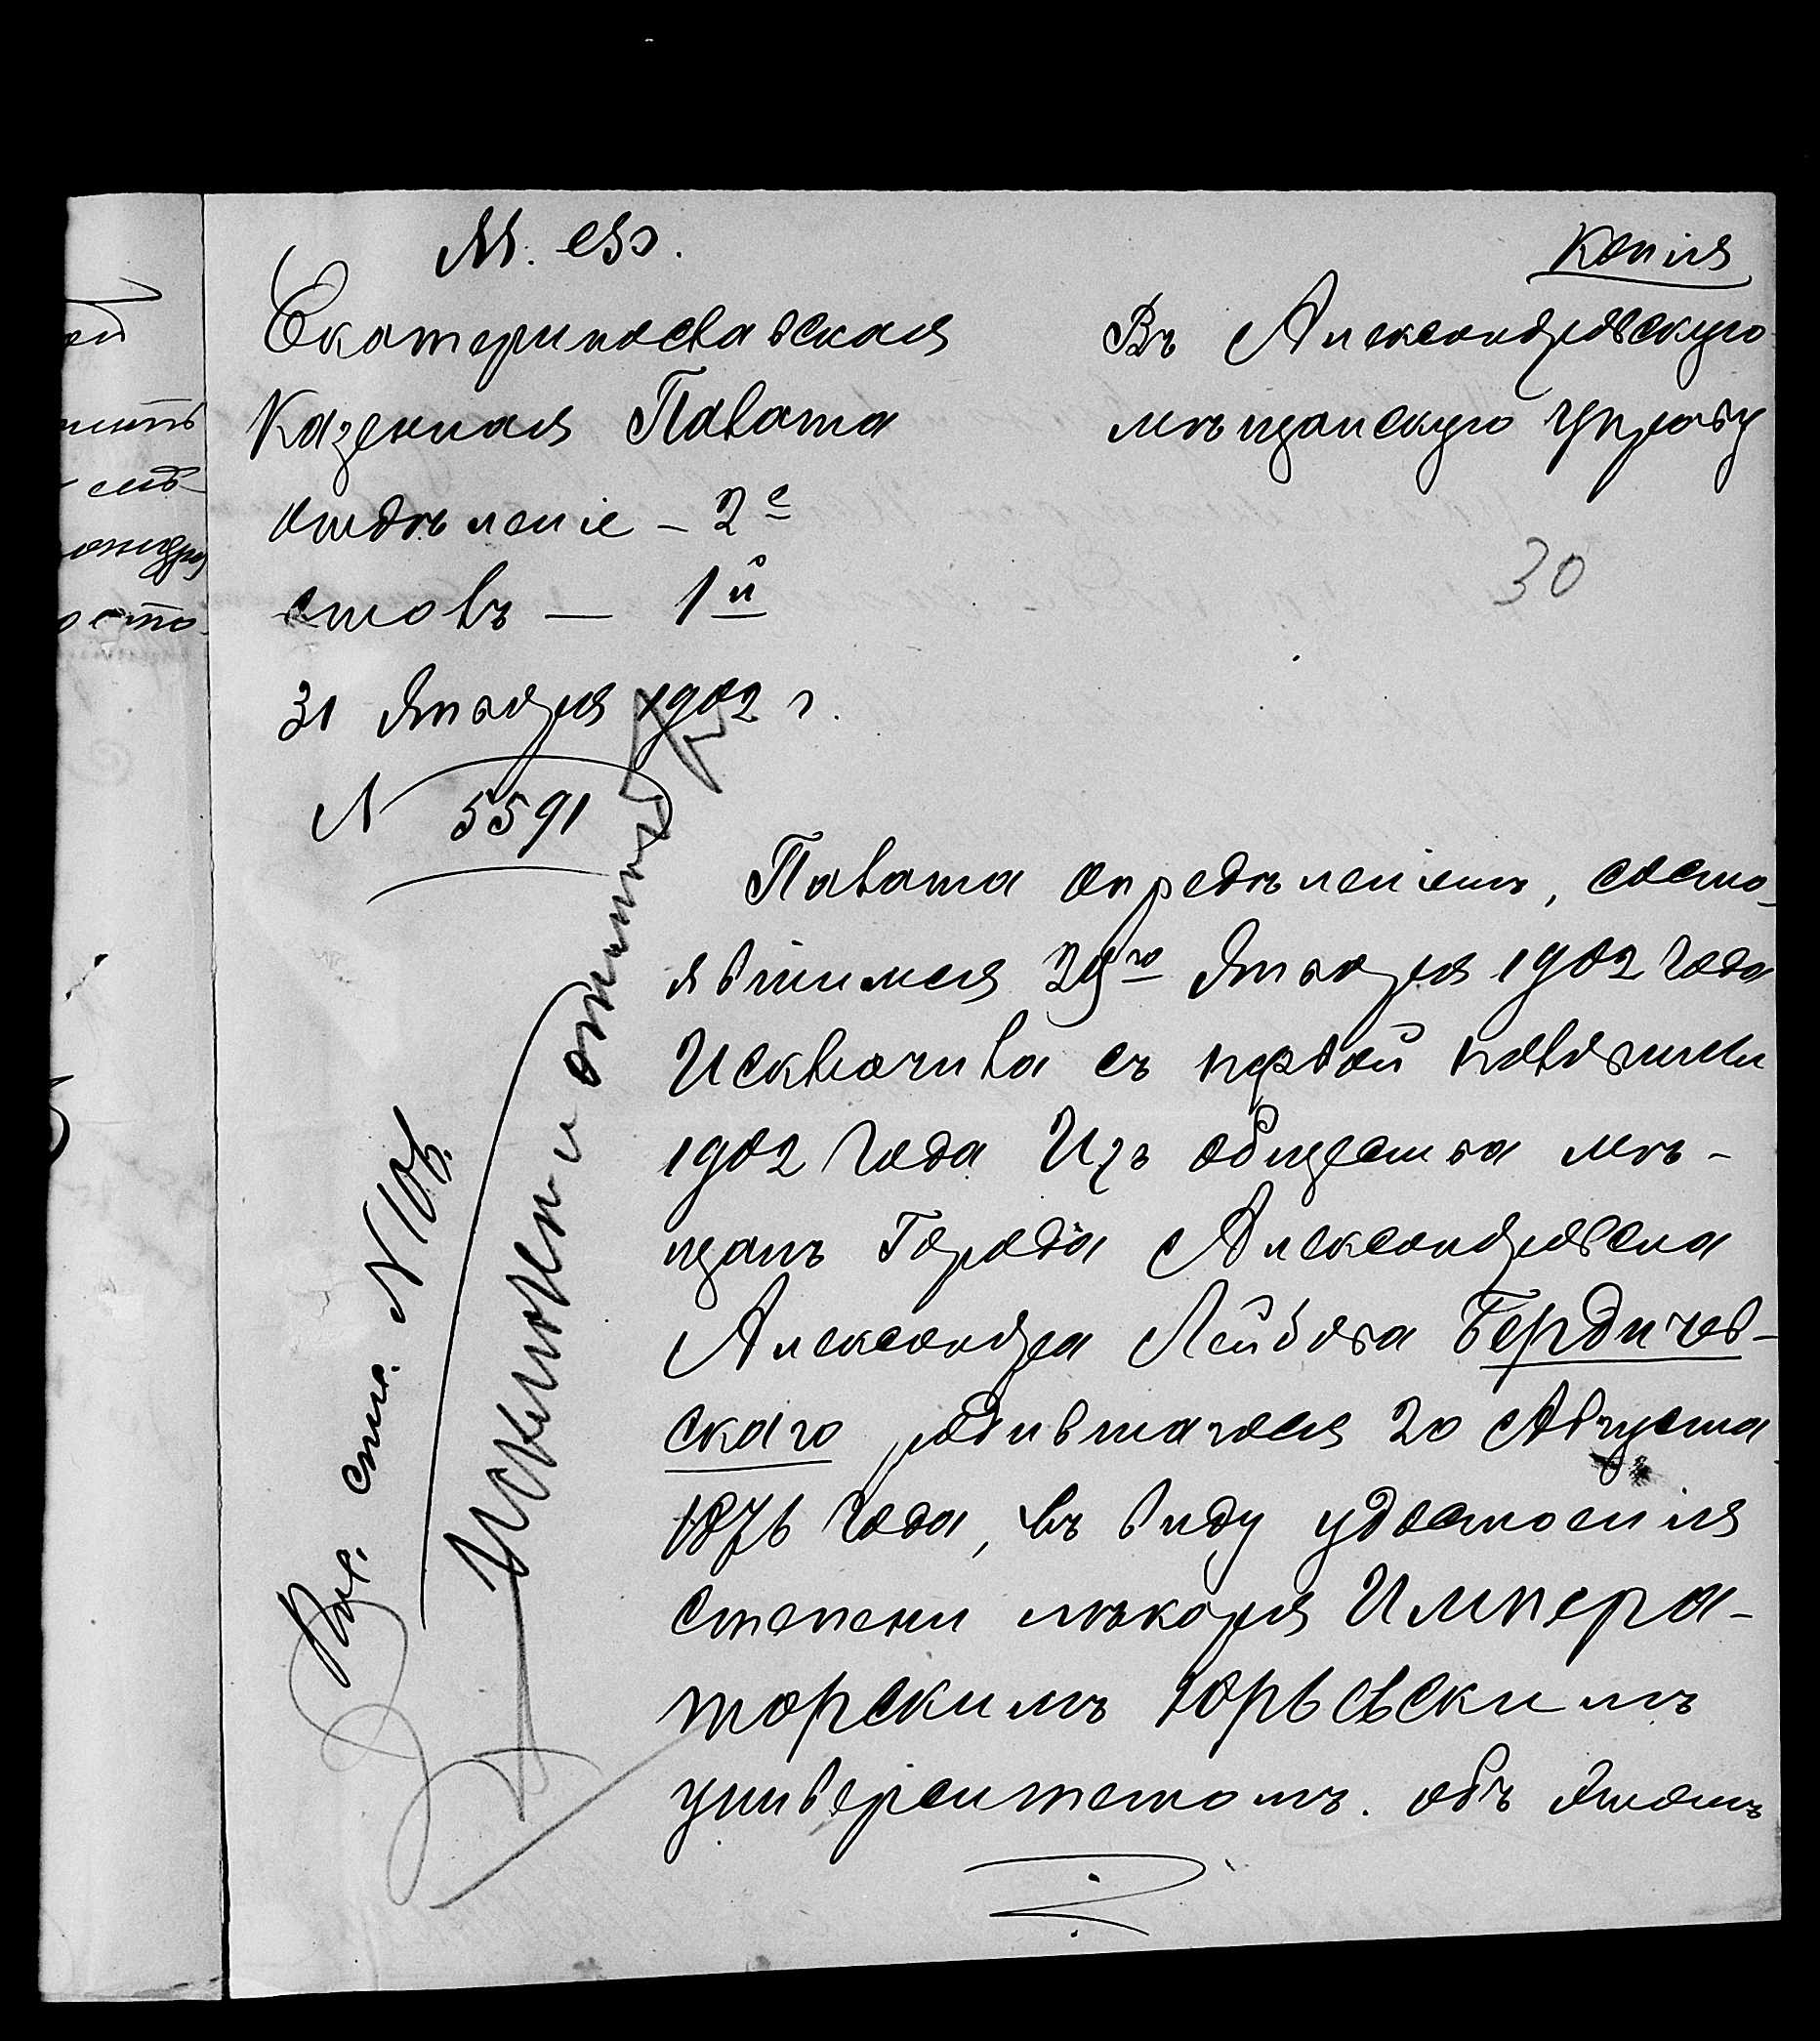 М. вз.
Копія
Екатеринославская
Казенная Палата
отдѣленіе - 2е
столъ — 1й
31 Января 1902 г.
N 5591
Въ Александровскую
мѣщанскую управу
30
Палата опредѣленіемъ, состо-
явшимся 29го Января 1902 года
Исключила съ первой половины
1902 года Изъ общества мѣ-
щанъ Города Александровска
Александра Лейбова Бердичев-
скаго родившагося 20 Августа
1876 года, въ виду удостоенія
степени лѣкаря Импера-
торскимъ Юрьевскимъ
университетомъ. объ этомъ
N 106.